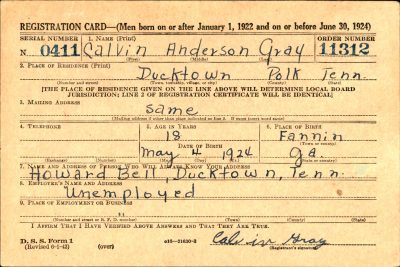 REGISTRATION CARD—(Men born on or after January 1, 1922 and on or before June 30, 1924)
SERIAL NUMBER 1. NAME (Print) ORDER NUMBER
N 0411 Calvin Anderson Gray 11312
(First) (Middle) (Last)
2. PLACE OF RESIDENCE (Print)
Ducktown Polk Tenn.
(Number and street) (Town, township, village, or city) (County) (State)
[THE PLACE OF RESIDENCE GIVEN ON THE LINE ABOVE WILL DETERMINE LOCAL BOARD
JURISDICTION; LINE 2 OF REGISTRATION CERTIFICATE WILL BE IDENTICAL]
3. MAILING ADDRESS
same
[Mailing address if other than place indicated on line 2. If same insert word same]
4. TELEPHONE 5. AGE IN YEARS 6. PLACE OF BIRTH
18 Fannin
DATE OF BIRTH (Town or county)
May 4 1924 Ga.
(Mo.) (Day) (Yr.) (State or country)
7. NAME AND ADDRESS OF PERSON WHO WILL ALWAYS KNOW YOUR ADDRESS
Howard Bell, Ducktown, Tenn.
8. EMPLOYER'S NAME AND ADDRESS
Unemployed
9. PLACE OF EMPLOYMENT OR BUSINESS
"
(Number and street or R. F. D. number) (Town) (County) (State)
I AFFIRM THAT I HAVE VERIFIED ABOVE ANSWERS AND THAT THEY ARE TRUE.
D. S. S. Form 1
(over) Calvin Gray
(Registrant's signature)